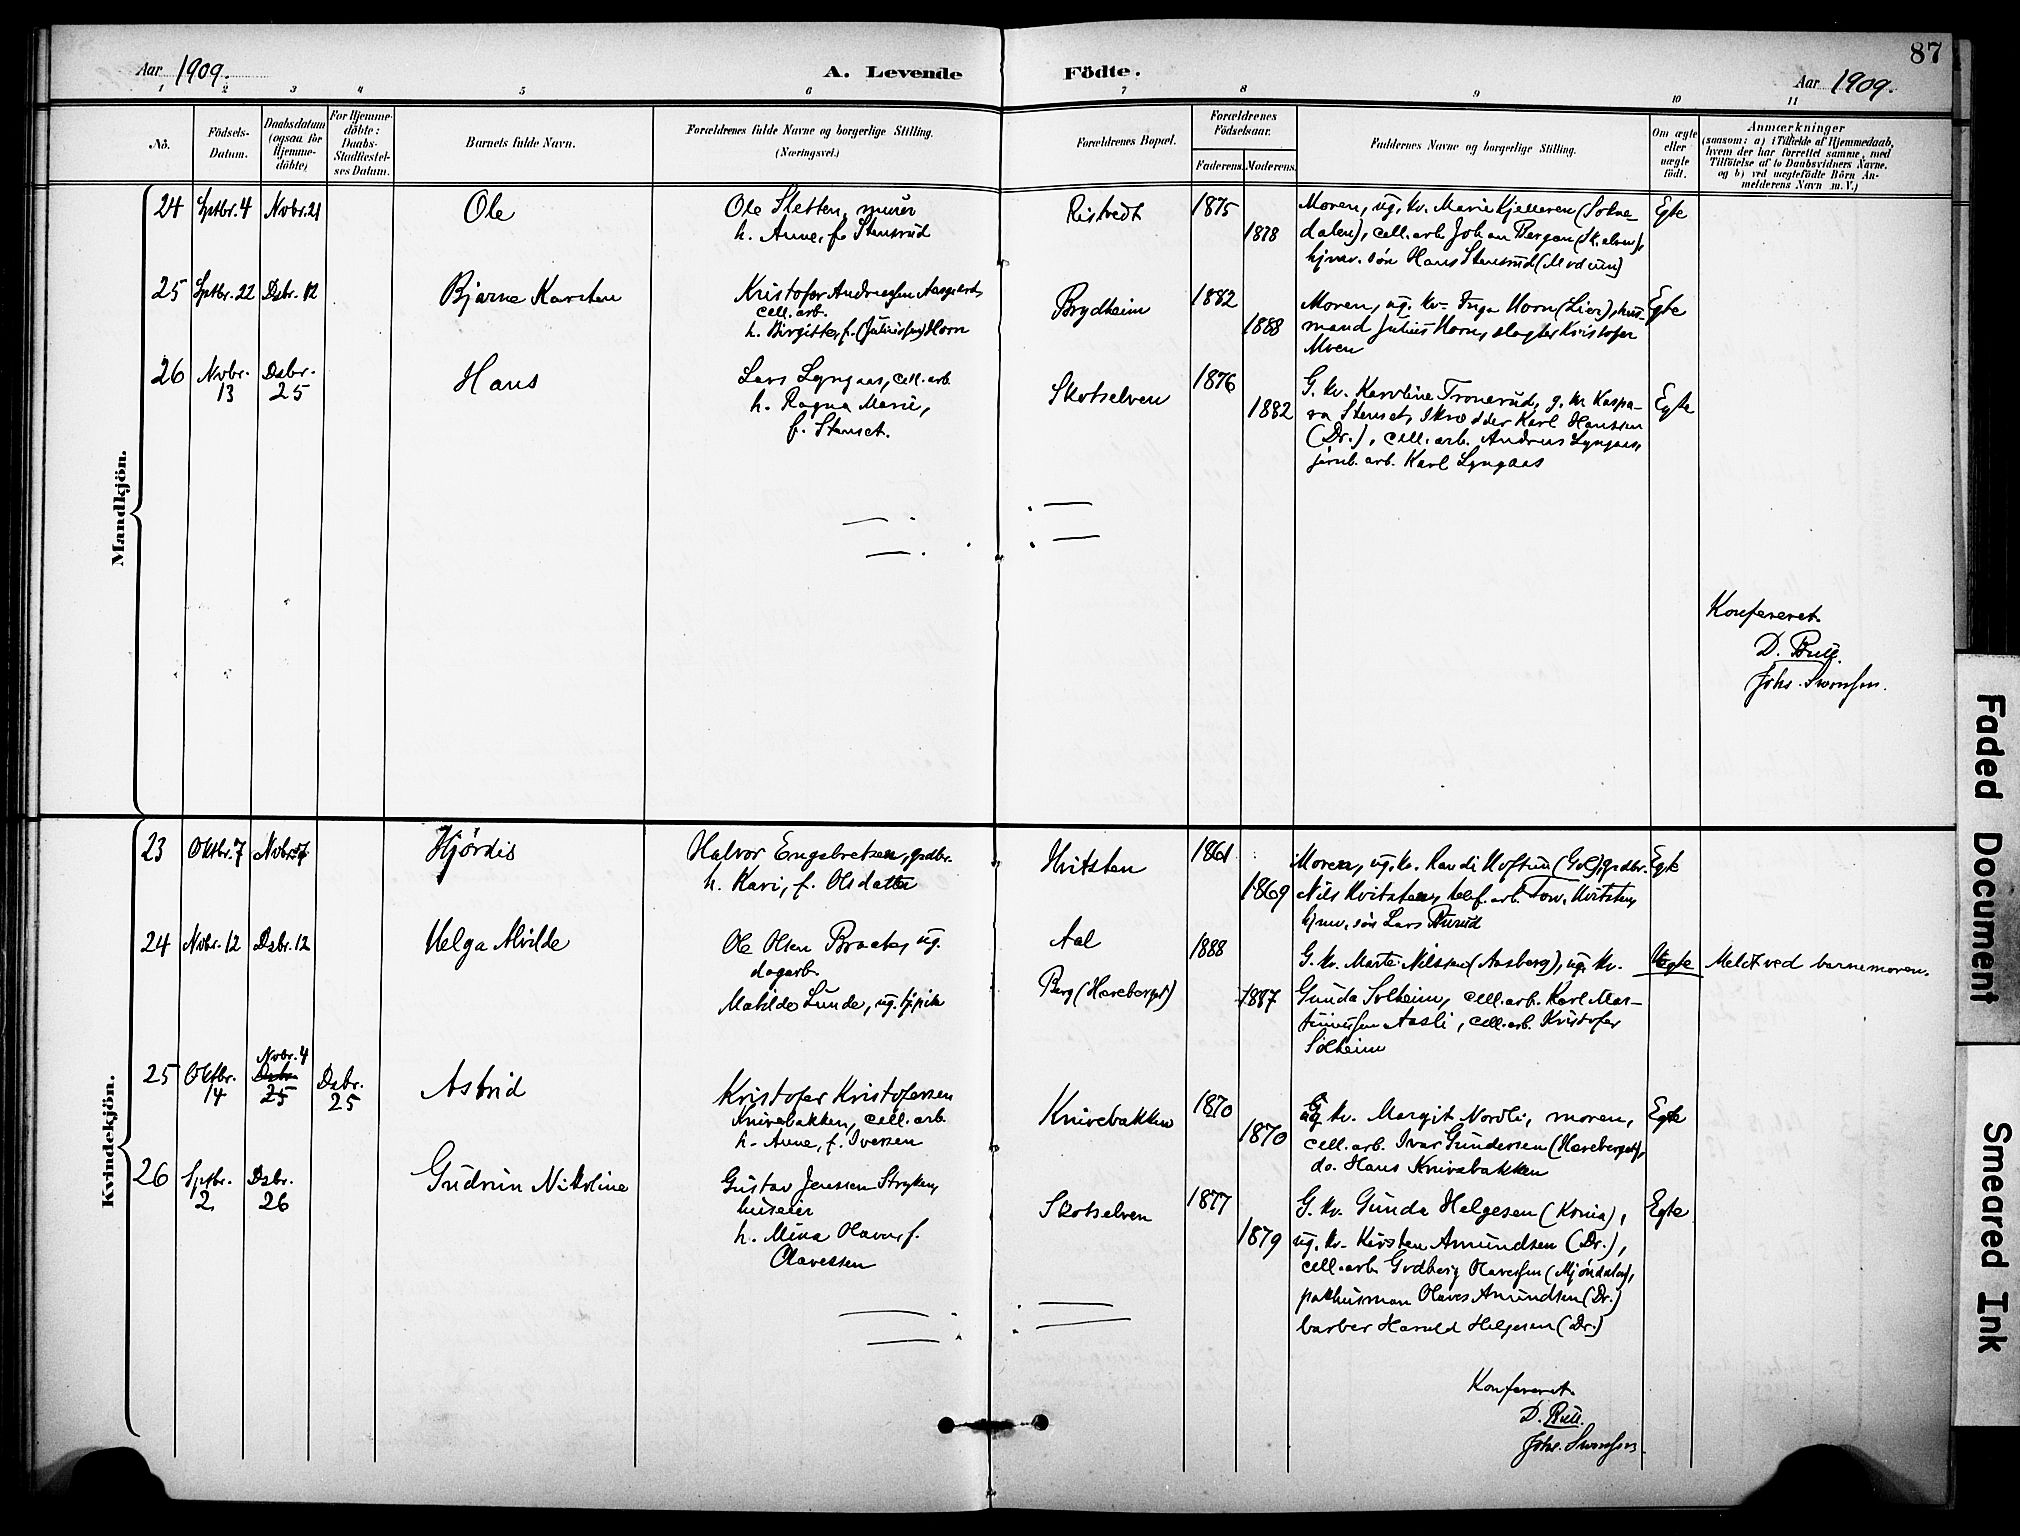 87
Aar 1909.
A. Levende Födte.
Aar 1909.
1 2 3 4 5 6 7 8 9 10 11
No.
Födsels-
Datum.
Daabsdatum
(ogsaa for
Hjemme-
döbte)
For Hjemme-
döbte:
Daabs-
Stadfæstel-
ses Datum.
Barnets fulde Navn.
Forældrenes fulde Navne og borgerlige Stilling.
(Næringsvei.)
Forældrenes Bopæl.
Forældrenes
Födselsaar.
Faderens.
Moderens.
Faddernes Navne og borgerlige Stilling.
Om ægte
eller
uægte
födt.
Anmærkninger
(saasom: a) i Tilfælde af Hjemmedaab,
hvem der har forrettet samme, med
Tilföielse af to Daabsvidners Navne.
og b) ved uægtefödte Börn An-
melderens Navn m. V.)
Mandkjön.
24 Sptbr. 4 Novbr. 21
Ole
Ole Sletten, murer
h. Anne, f. Stensrud
Ristvedt
1875
1878
Moren, ug. kv. Marie Kjelleren (Sokne-
dalen), cell. arb. Johan Bergan (Sk.elven),
hjmv. søn Hans Stensrud (Modum)
Egte
25 Sptbr. 22 Dsbr. 12
Bjarne Karsten
Kristofer Andreassen Aasgaard,
cell. arb.
h. Birgitte, f. (Juliussen) Horn
Brydheim
1882
1888
Moren, ug. kv. Inga Horn (Lier), hus-
mand Julius Horn, slagter Kristofer
Moen
Egte
26 Novbr. 13 Dsbr. 25
Hans
Lars Lyngaas, cell. arb.
h. Ragna Marie,
f. Stenset.
Skotselven
1876
1882
G. kv. Karoline Tronerud, g. kv. Kaspa-
ra Stenset, skrædder Karl Hanssen
(Dr.), cell. arb. Andreas Lyngaas,
jernb. arb. Karl Lyngaas
Egte
Konfereret.
D. Bull.
Johs. Svensen.
Kvindekjön.
23 Oktbr. 7 Novbr.
Hjördis
Halvor Engebretsen, grdbr.
h. Kari, f. Olsdatter
Hvitsten
1861
1869
Moren, ug. kv. Randi Hoftun (Gol), grdbr.
Nils Hvitsten, telef. arb. Tov. Hvitsten,
hjmv. søn Lars Rurud
Egte
24 Novbr. 12 Dsbr. 12
Helga Alvilde
Ole Olsen Braata, ug.
dagarb.
Matilde Lunde, ug. tj.pike
Aal
Berg (Hareberget)
1888
1887
G. kv. Marte Nilssen (Aasberg), ug. kv.
Gunda Solheim, cell. arb. Karl Mar-
tiniussen Aasli, cell. arb. Kristofer
Solheim
Uegte
Meldt ved barnemoren.
25 Oktbr. 14 Novbr. 4 Dsbr. 25 Dsbr. 25
Astrid
Kristofer Kristofersen
Knivebakken, cell. arb.
h. Anne, f. Iversen
Knivebakken
1870
1870
G. kv. Margit Nordli, moren,
cell. arb. Ivar Gundersen (Hareberget),
do. Hans Knivebakken
Egte
26 Sptbr. 2 Dsbr. 26
Gudrun Nikoline
Gustav Jenssen Stryken,
huseier
h. Mina Olava, f.
Olavessen
Skotselven
1877
1879
G. kv. Gunda Helgesen (Krnia),
ug. kv. Kirsten Amundsen (Dr.),
cell. arb. Godberg Olavessen (Mjöndalen),
pakhusman Olaves Amundsen (Dr.)
barber Harald Helgesen (Dr.)
Egte
Konfereret.
D. Bull.
Johs. Svensen.
Faded Document
Smeared Ink